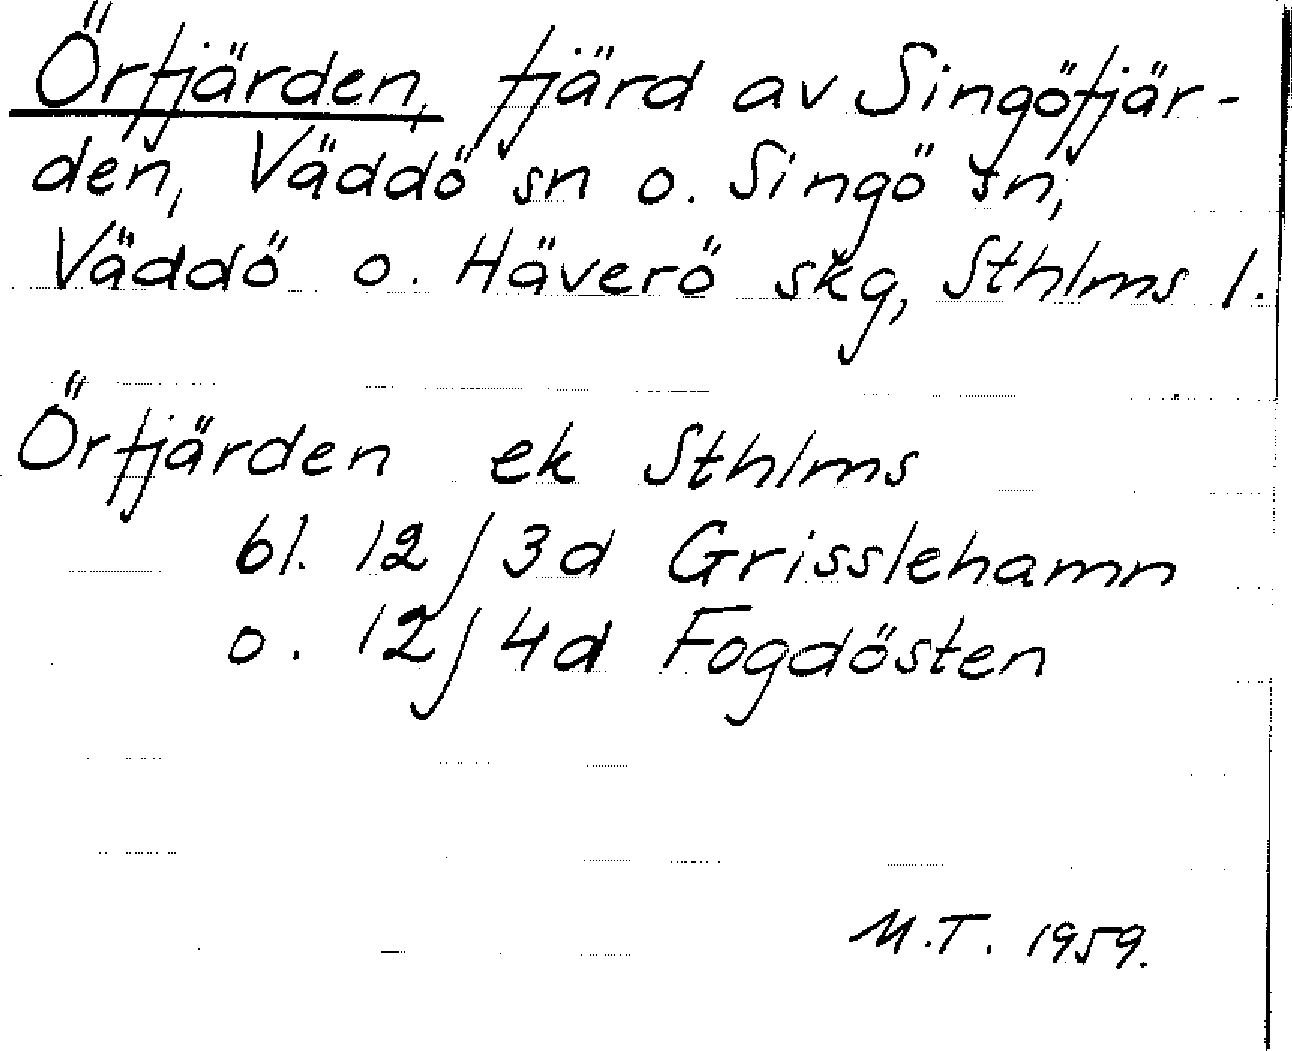 Örfjärden, fjärd av Singöfjär-
den, Väddö sn o. Singö sn,
Väddö o. Häverö skg, Sthlms l.
Örfjärden ek Sthlms
bl. 12 / 3d Grisslehamn
o. 12 / 4d Fogdösten
M.T. 1959.